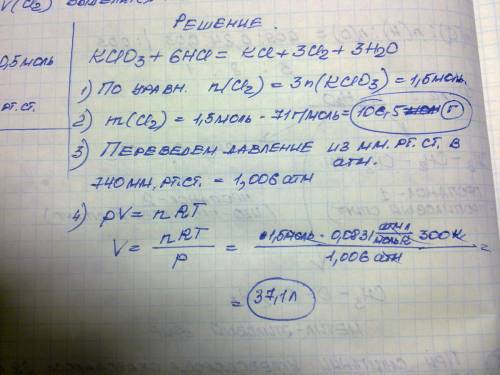 V(Cl₂)
РЕШЕНИЕ.
0,5 моль
KClO₃ + 6HCl = KCl + 3Cl₂ + 3H₂O
1) ПО УРАВН. n(Cl₂) = 3n(KClO₃) = 1,5 моль.
РТ.СТ.
2) m(Cl₂) = 1,5 моль · 71 г/моль = 106,5 г
3) ПЕРЕВЕДЕМ ДАВЛЕНИЕ ИЗ ММ. РТ. СТ. В
АТМ.
740 ММ. РТ. СТ. = 1,006 АТМ
4) pV = nRT
V = nRT / p = 1,5 моль · 0,0831 атм л / моль К 300К / 1,006 атм =
= 37,1 л